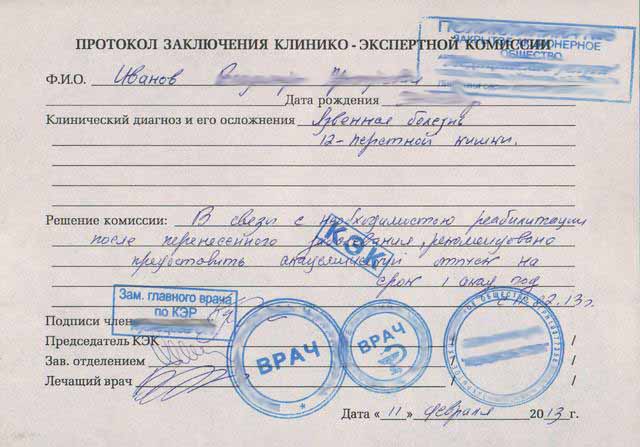 ЗАКРЫТОЕ АКЦИОНЕРНОЕ
ОБЩЕСТВО
ПРОТОКОЛ ЗАКЛЮЧЕНИЯ КЛИНИКО - ЭКСПЕРТНОЙ КОМИССИИ
Ф.И.О. Иванов
Дата рождения
Клинический диагноз и его осложнения Язвенная болезнь
12-перстной кишки.
Решение комиссии: В связи с необходимостью реабилитации
после перенесенного заболевания, рекомендовано
предоставить академический отпуск на
срок 1 акад год
КЭК
02.13г.
Зам. главного врача
по КЭР
Подписи член
Председатель КЭК / /
Зав. отделением / /
Лечащий врач / /
ВРАЧ
ВРАЧ
Дата « 11 » февраля 2013 г.